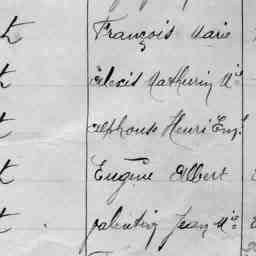 t François Marie
t Alexis Mathurin Mie
t Alphonse Henri Eug.
t Eugène Albert
t Valentin Jean Mie